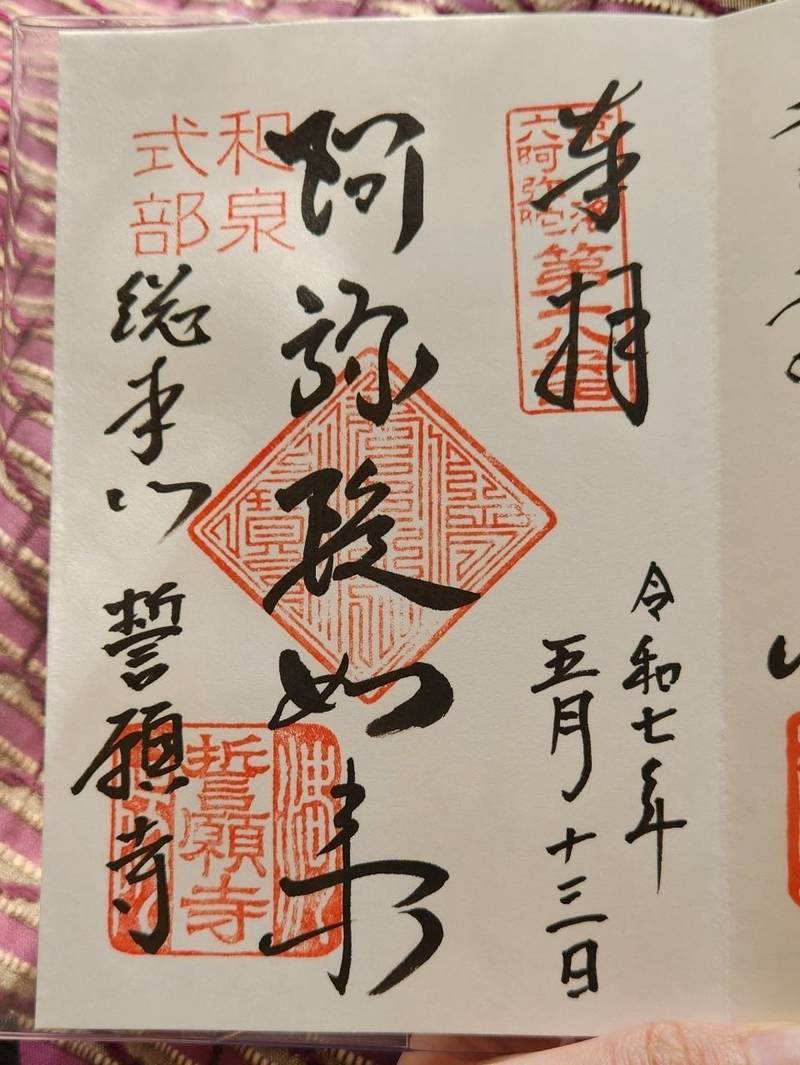 奉拝
京洛
六阿弥陀
第六番
令和七年
五月十三日
阿弥陀如来
和泉
式部
総本山 誓願寺
誓願寺